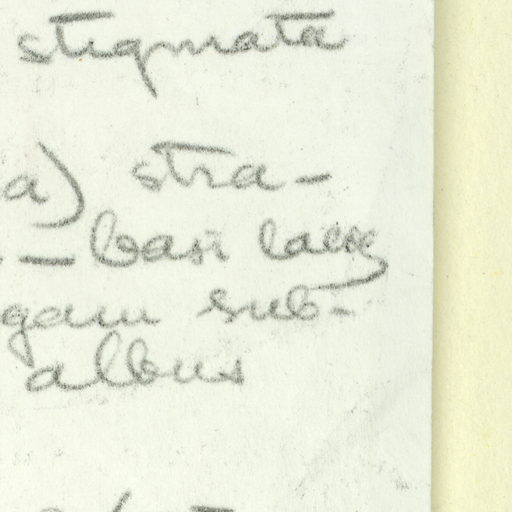 stigmata
a) stra-
- basi
gam sub-
albus